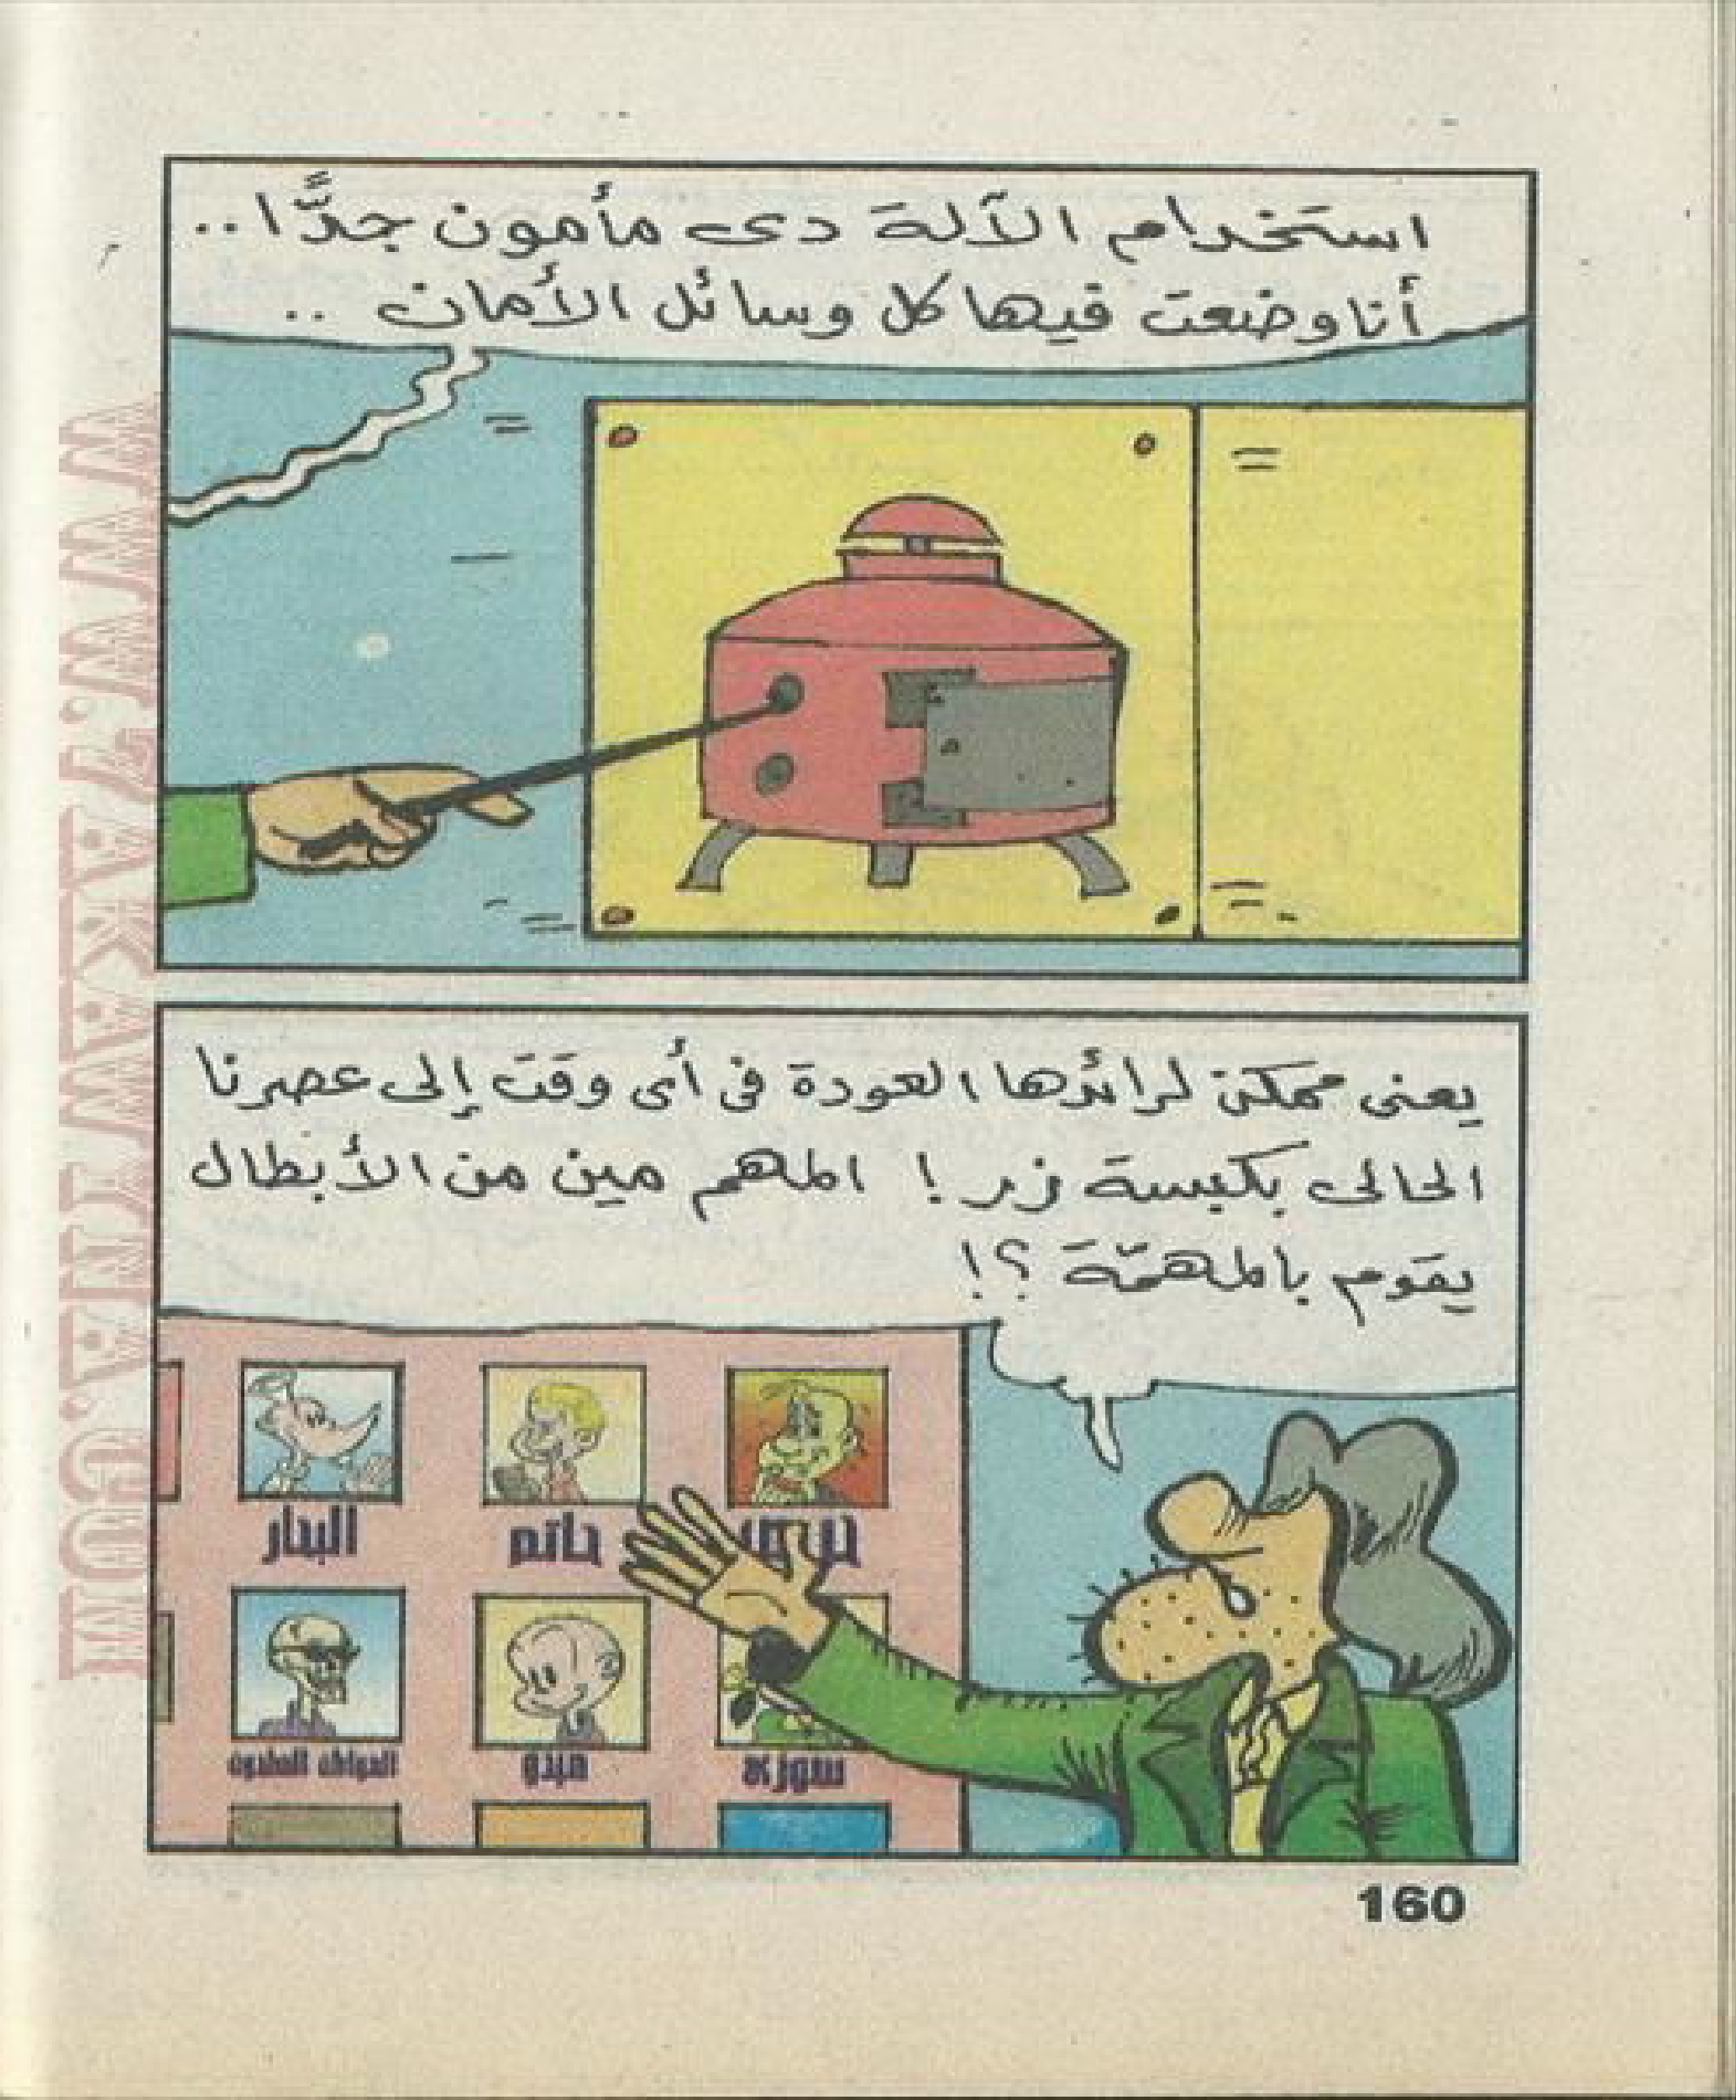 استخدام الآلة دى مأمون جدًّا..
أنا وضعت فيها كل وسائل الأمان ..
يعنى ممكن لرائدها العودة فى أى وقت إلى عصرنا
الحالى بكبسة زر ! المهم مين من الأبطال
يقوم بالمهمّة ؟!
حاتم البحار
سوزى ميدو المواطن المطحون
160